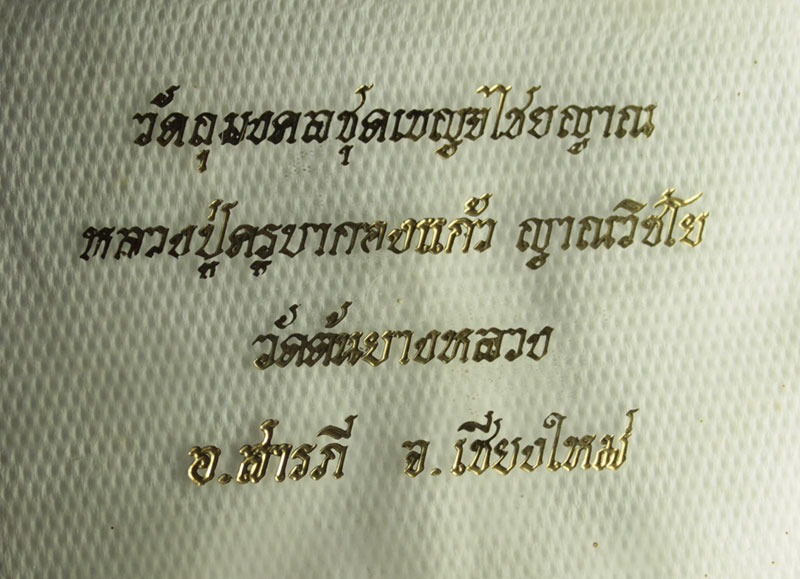 วัตถุมงคลชุดเชญจไชยญาณ
หลวงปู่ครูบากองแก้ว ญาณวิชโย
วัดต้นยางหลวง
อ.สารภี จ.เชียงใหม่